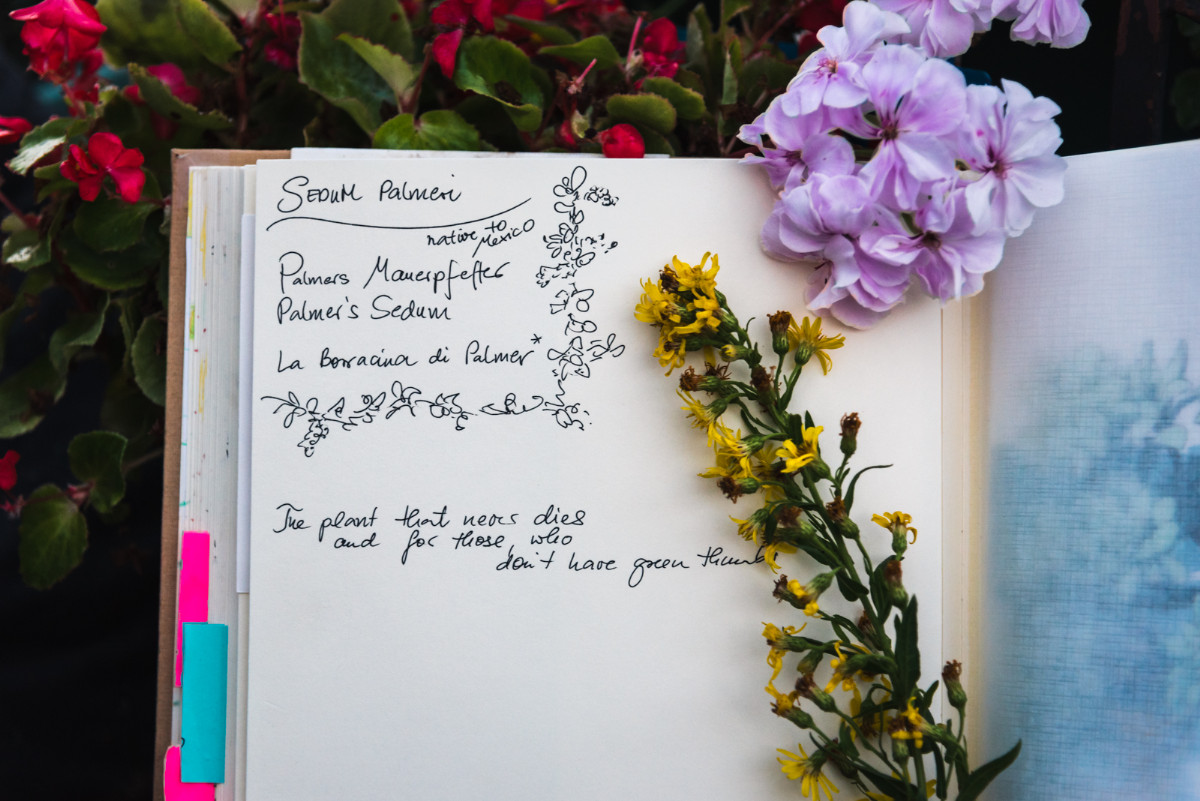 SEDUM Palmeri
native to Mexico
Palmers Mauerpfeffer
Palmer's Sedum
La Borracina di Palmer*
The plant that never dies
and for those, who
don't have green thumb